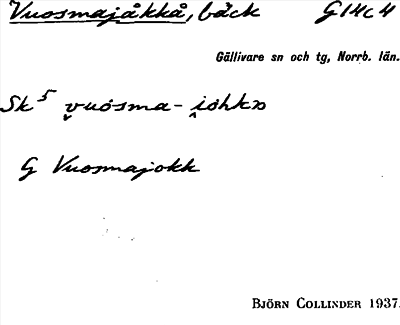 Vuosmajåkkå, bäck G14c4
Gällivare sn och tg, Norrb. län.
Sk 5 v̬uósma- i̭òhkɔ
G Vuosmajokk
BJÖRN COLLINDER 1937.